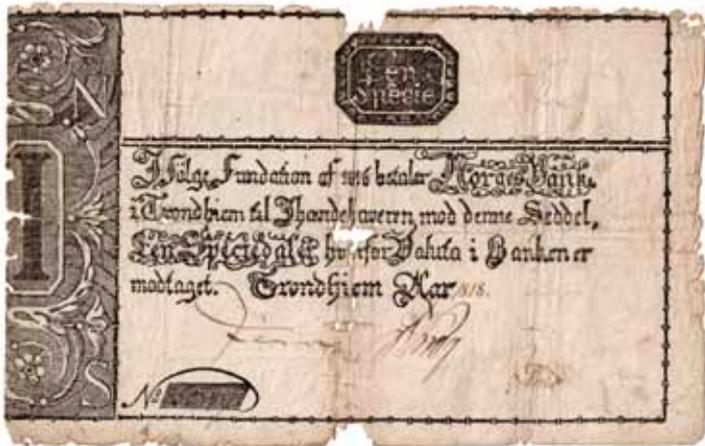 en
Specie
N
I
S
Ifölge Fundation af 1816 betaler Norges Bank
i Trondhiem til Ihændehaveren mod denne Seddel,
Een Speciedaler hvorfor Valuta i Banken er
modtaget. Trondhiem Aar 1818.
No